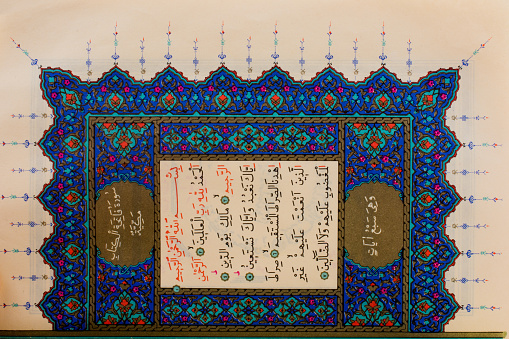 سُورَةُ فَاتِحَةِ الْكِتَابِ
مَكِّيَّة
بِسْمِ اللّٰهِ الرَّحْمٰنِ الرَّحِيمِ
اَلْحَمْدُ لِلّٰهِ رَبِّ الْعَالَمِينَ ۝ اَلرَّحْمٰنِ
الرَّحِيمِ ۝ مَالِكِ يَوْمِ الدِّينِ ۝
اِيَّاكَ نَعْبُدُ وَاِيَّاكَ نَسْتَعِينُ ۝
اِهْدِنَا الصِّرَاطَ الْمُسْتَقِيمَ ۝ صِرَاطَ
الَّذِينَ اَنْعَمْتَ عَلَيْهِمْ غَيْرِ
الْمَغْضُوبِ عَلَيْهِمْ وَلَا الضَّالِّينَ ۝
وَهِيَ سَبْعُ اٰيَاتٍ